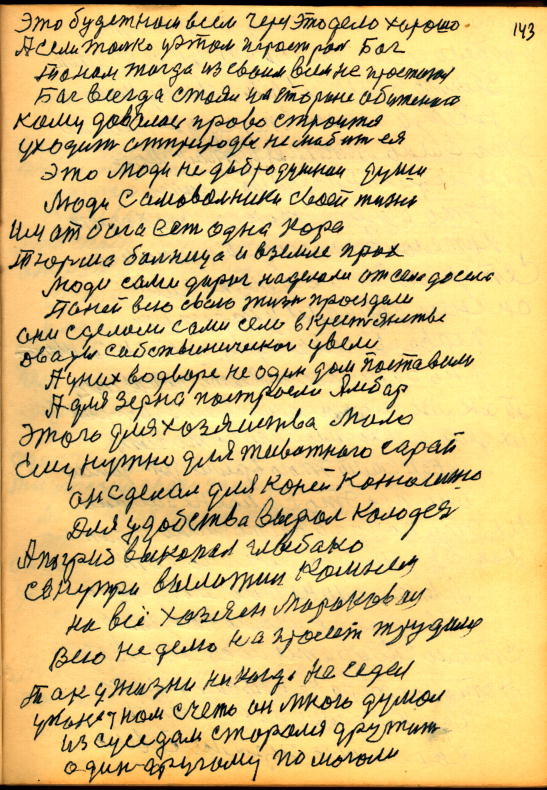 143
Это будет нам всем через это дело хорошо
А если только у этом проиграл Бог
То нам тогда из своим всем не простят
Бог всегда стоял на стороне обиженого
кому довелось право строится
уходит от природы не любит ея
Это люди не добродушной души
Люди самоволники своей жизни
Им от бога ест одна кора
Тюрма болница и в земле прах
Люди сами дорог наделали от села досела
По ней всю свою жизн проездели
они сделали сами себе в крестянстве
собственическое увели
А у них водворе не один дом поставили
А для зерна построели Амбар
Этого для хозяиства мало
Ему нужно для животного сарай
он сделал для коней конюшню
Для удобства вырыл колодез
А погриб выкопал глыбако
Свнутри выложил комнем
на всё хозяен мараковал
Всю неделю на пролет трудился
Так у жизни никогда не седел
у конечном счете он много думал
из суседам старался дружит
один другому помогали